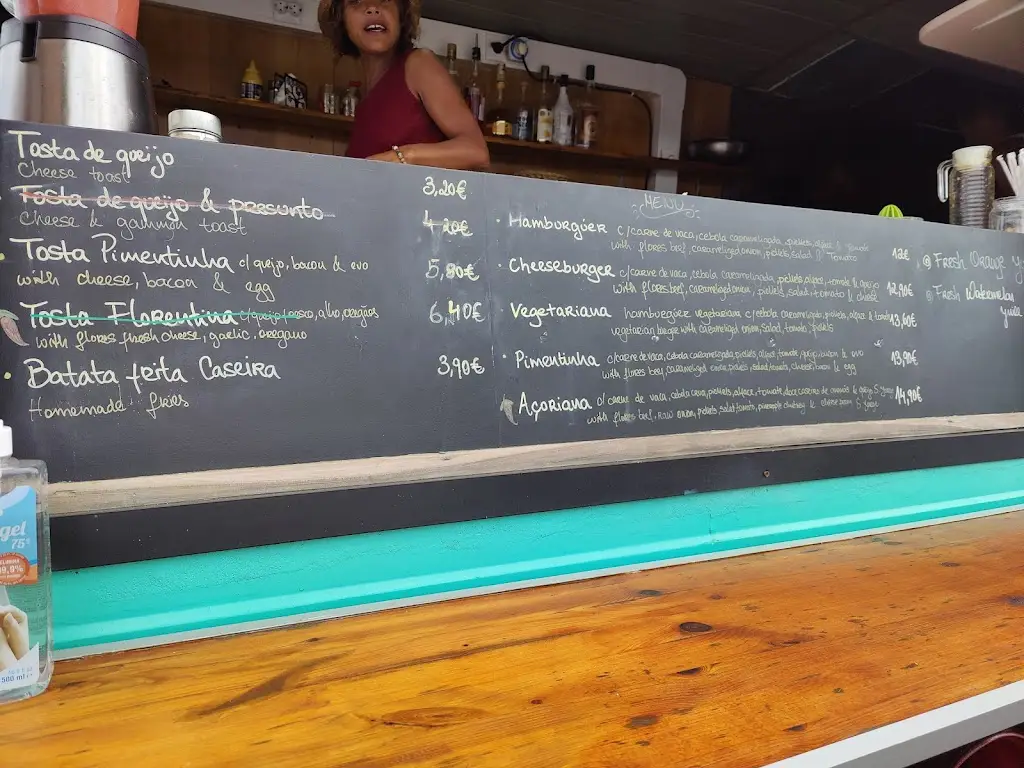 Tosta de queijo
Cheese toast
3,20€
Tosta de queijo & presunto
Cheese & gammon toast
4,20€
Tosta Pimentinha c/ queijo, bacon & ovo
with cheese, bacon & egg
5,80€
Tosta Florentina c/ queijo fresco, alho, oregãos
with flores fresh cheese, garlic, oregano
6,40€
Batata frita Caseira
Homemade fries
3,90€
MENU
Hamburgúer c/ carne de vaca, cebola caramelizada, pickels, alface & tomate
with flores beef, caramelized onion, pickels, salad & tomato
12€
Cheeseburger c/ carne de vaca, cebola caramelizada, pickels, alface, tomate & queijo
with flores beef, caramelized onion, pickels, salad, tomato & cheese
12,90€
Vegetariana hamburgúer vegetariano c/ cebola caramelizada, pickels, alface & tomate
vegetarian burger with caramelized onion, salad, tomato, pickels
13,60€
Pimentinha c/ carne de vaca, cebola caramelizada, pickels, alface, tomate, queijo, bacon & ovo
with flores beef, caramelized onion, pickels, salad, tomato, cheese, bacon & egg
13,90€
Açoriana c/ carne de vaca, cebola crua, pickels, alface, tomate, doce caseiro de ananás & queijo S. Jorge
with flores beef, raw onion, pickels, salad, tomato, pineapple chutney & cheese S. Jorge
14,90€
Fresh Orange
Fresh Watermelon
gel
75°
500 ml